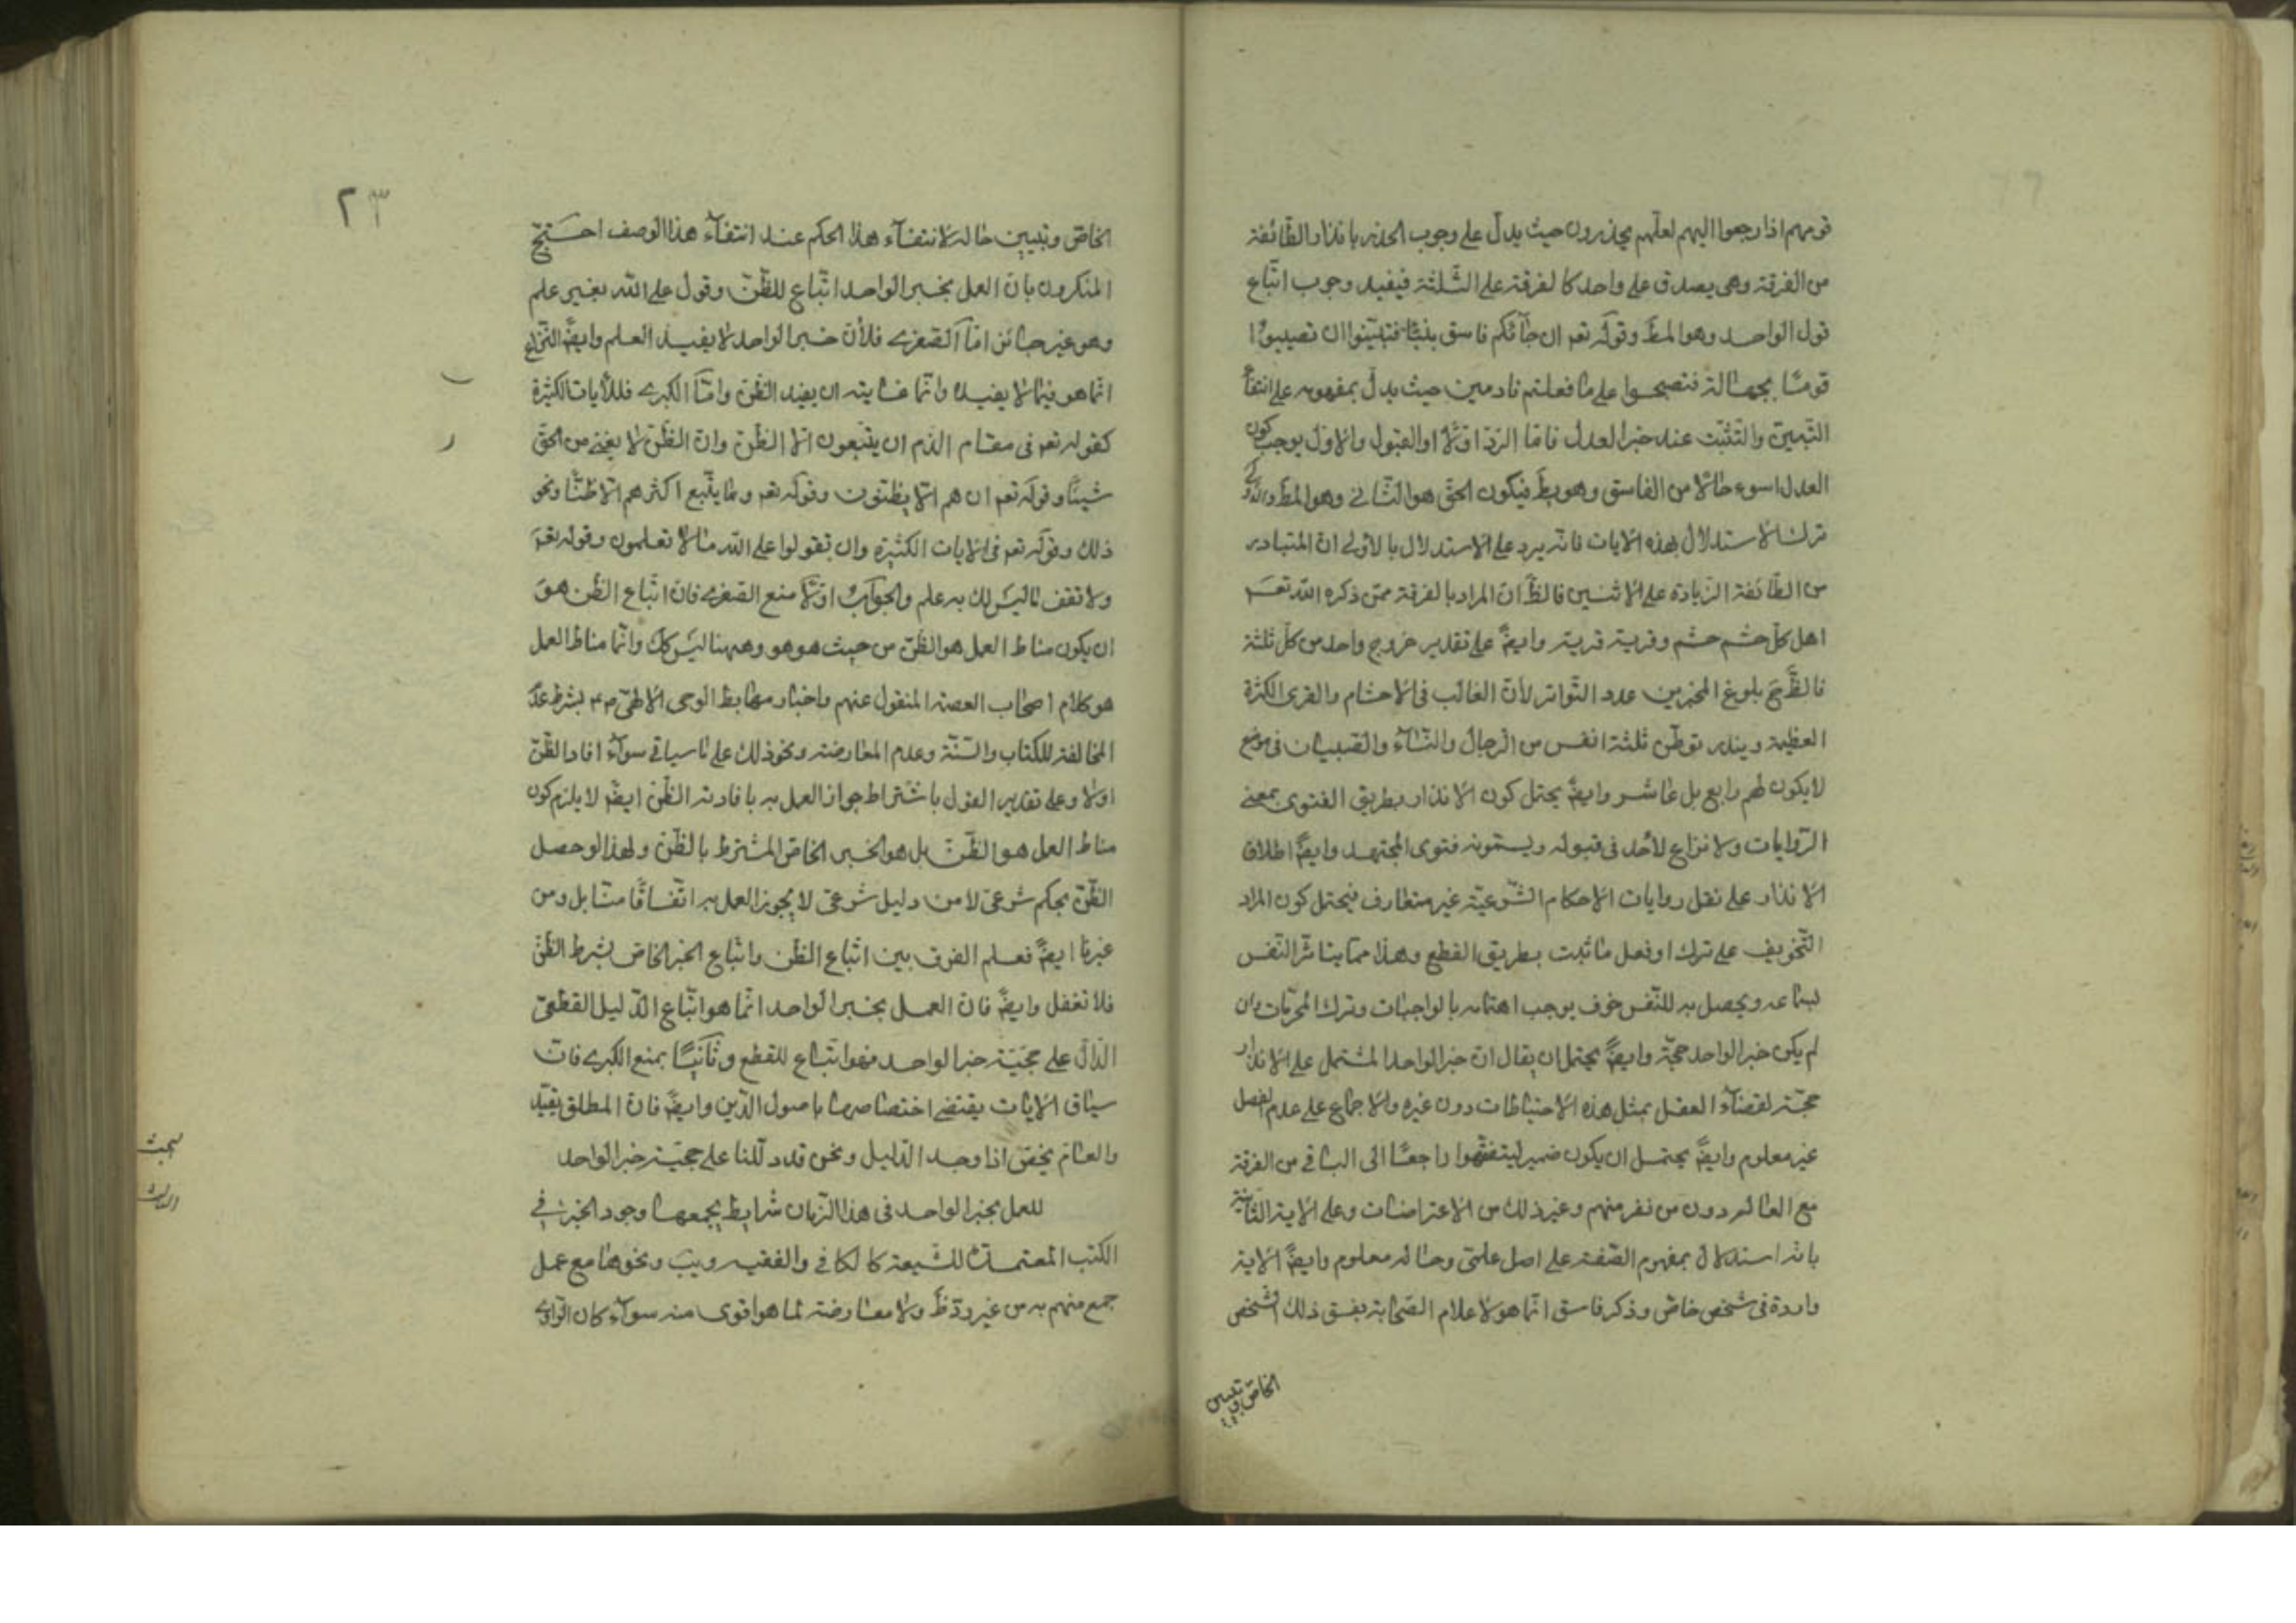 قومهم اذا رجعوا اليهم لعلّهم يحذرون حيث يدلّ على وجوب الحذر بانذار الطّائفة
من الفرقة وهى يصدق على واحد كالفرقة على الثّلثة فيفيد وجوب اتّباع
قول الواحد وهو المط وقوله تعم ان جآئكم فاسق بنبأ فتبيّنوا ان تصيبوا
قومًا بجهالة فتصبحوا على ما فعلتم نادمين حيث يدلّ بمفهومه على انتفآء
التّبيّن والتّثبّت عند خبر العدل فامّا الردّ اوّلًا او القبول والاوّل يوجب كون
العدل اسوء حالًا من الفاسق وهو بط فيكون الحقّ هو الثّانى وهو المط والاولى
ترك الاستدلال بهذه الايات فانّه يرد على الاستدلال بالاولى انّ المتبادر
من الطّائفة الزّيادة على الاثنين فالظّ انّ المراد بالفرقة ممّن ذكره الله تعم
اهل كلّ حشم حشم وقرية قرية وايضً على تقدير خروج واحد من كلّ ثلثة
فالظّ ح بلوغ المخبرين عدد التّواتر لأنّ الغالب فى الاحشام والقرى الكثرة
العظيمة ويندر توطّن ثلثة انفس من الرّجال والنّسآء والصّبيان فى موضع
لايكون لهم رابع بل عاشر وايضً يحتمل كون الانذار بطريق الفتوى بمعنى
الرّوايات ولا نزاع لأحد فى قبوله ويسمّونه فتوى المجتهد وايضً اطلاق
الانذار على نقل روايات الاحكام الشّرعيّة غير متعارف فيحتمل كون المراد
التّخويف على ترك او فعل ما ثبت بطريق القطع وهذا ممّا يتاثّر النّفس
لسماعه ويحصل به للنّفس خوف يوجب اهتمامه بالواجبات وترك المحرّمات وان
لم يكن خبر الواحد حجّة وايضً يحتمل ان يقال انّ خبر الواحد المشتمل على الانذار
حجّة لقضآء العقل بمثل هذه الاحتياطات دون غيره والاجماع على عدم الفصل
غير معلوم وايضً يحتمل ان يكون ضمير ليتفقّهوا راجعًا الى الباقى من الفرقة
مع العالم دون من نفر منهم وغير ذلك من الاعتراضات وعلى الاية الثّانية
بانّه استدلال بمفهوم الصّفة على اصل علمىّ وحاله معلوم وايضً الاية
واردة فى شخص خاصّ وذكر فاسق انّما هو لاعلام الصّحابة بفسق ذلك الشّخص
الخاصّ وتبيين
٢٣
الخاصّ وتبيين حاله لا انتفآء هذا الحكم عند انتفآء هذا الوصف احتجّ
المنكرون بانّ العمل بخبر الواحد اتّباع للظّنّ وقول على الله بغير علم
وهو غير جائز امّا الصّغرى فلأنّ خبر الواحد لا يفيد العلم وايضً النّزاع
انّما هو فيما لا يفيده وانّما غايته ان يفيد الظّنّ وامّا الكبرى فللأيات الكثيرة
كقوله تعم فى مقام الذّم ان يتّبعون الّا الظّنّ وانّ الظّنّ لا يغنى من الحقّ
شيئًا وقوله تعم ان هم الّا يظنّون وقوله تعم وما يتّبع اكثرهم الّا ظنًّا ونحو
ذلك وقوله تعم فى الايات الكثيرة وان تقولوا على الله ما لا تعلمون وقوله تعم
ولا تقف ما ليس لك به علم والجواب اوّلًا منع الصّغرى فانّ اتّباع الظّن هو
ان يكون مناط العمل هو الظّنّ من حيث هو هو وههنا ليس كك وانّما مناط العمل
هو كلام اصحاب العصمة المنقول عنهم واخبار مهابط الوحى الالهىّ بشرط عدم
المخالفة للكتاب والسّنّة وعدم المعارضة ونحو ذلك على ما سياتى سوآء افاد الظّنّ
او لا وعلى تقدير القول باشتراط جواز العمل به بافادته الظّنّ ايضً لا يلزم كون
مناط العمل هو الظّنّ بل هو الخبر الخاصّ المشترط بالظّنّ ولهذا لو حصل
الظّنّ بحكم شرعىّ لا من دليل شرعىّ لا يجوز العمل به اتّفاقًا منّا بل ومن
غيرنا ايضً فعلم الفرق بين اتّباع الظّن واتّباع الخبر الخاصّ بشرط الظّنّ
فلا تغفل وايضً فانّ العمل بخبر الواحد انّما هو اتّباع الدّليل القطعىّ
الدّالّ على حجّيّة خبر الواحد فهو اتّباع للقطع وثانيًا بمنع الكبرى فانّ
سياق الايات يقتضى اختصاصها باصول الدّين وايضً فانّ المطلق يقيّد
والعامّ يخصّ اذا وجد الدّليل ونحن قد دلّلنا على حجّيّة خبر الواحد
البحث
الثالث
للعمل بخبر الواحد فى هذا الزّمان شرايط يجمعها وجود الخبر فى
الكتب المعتمدة للشّيعة كالكافى والفقيه ويب ونحوها مع عمل
جمع منهم به من غير ردّ ظ ولا معارضة لما هو اقوى منه سوآء كان الرّاوى